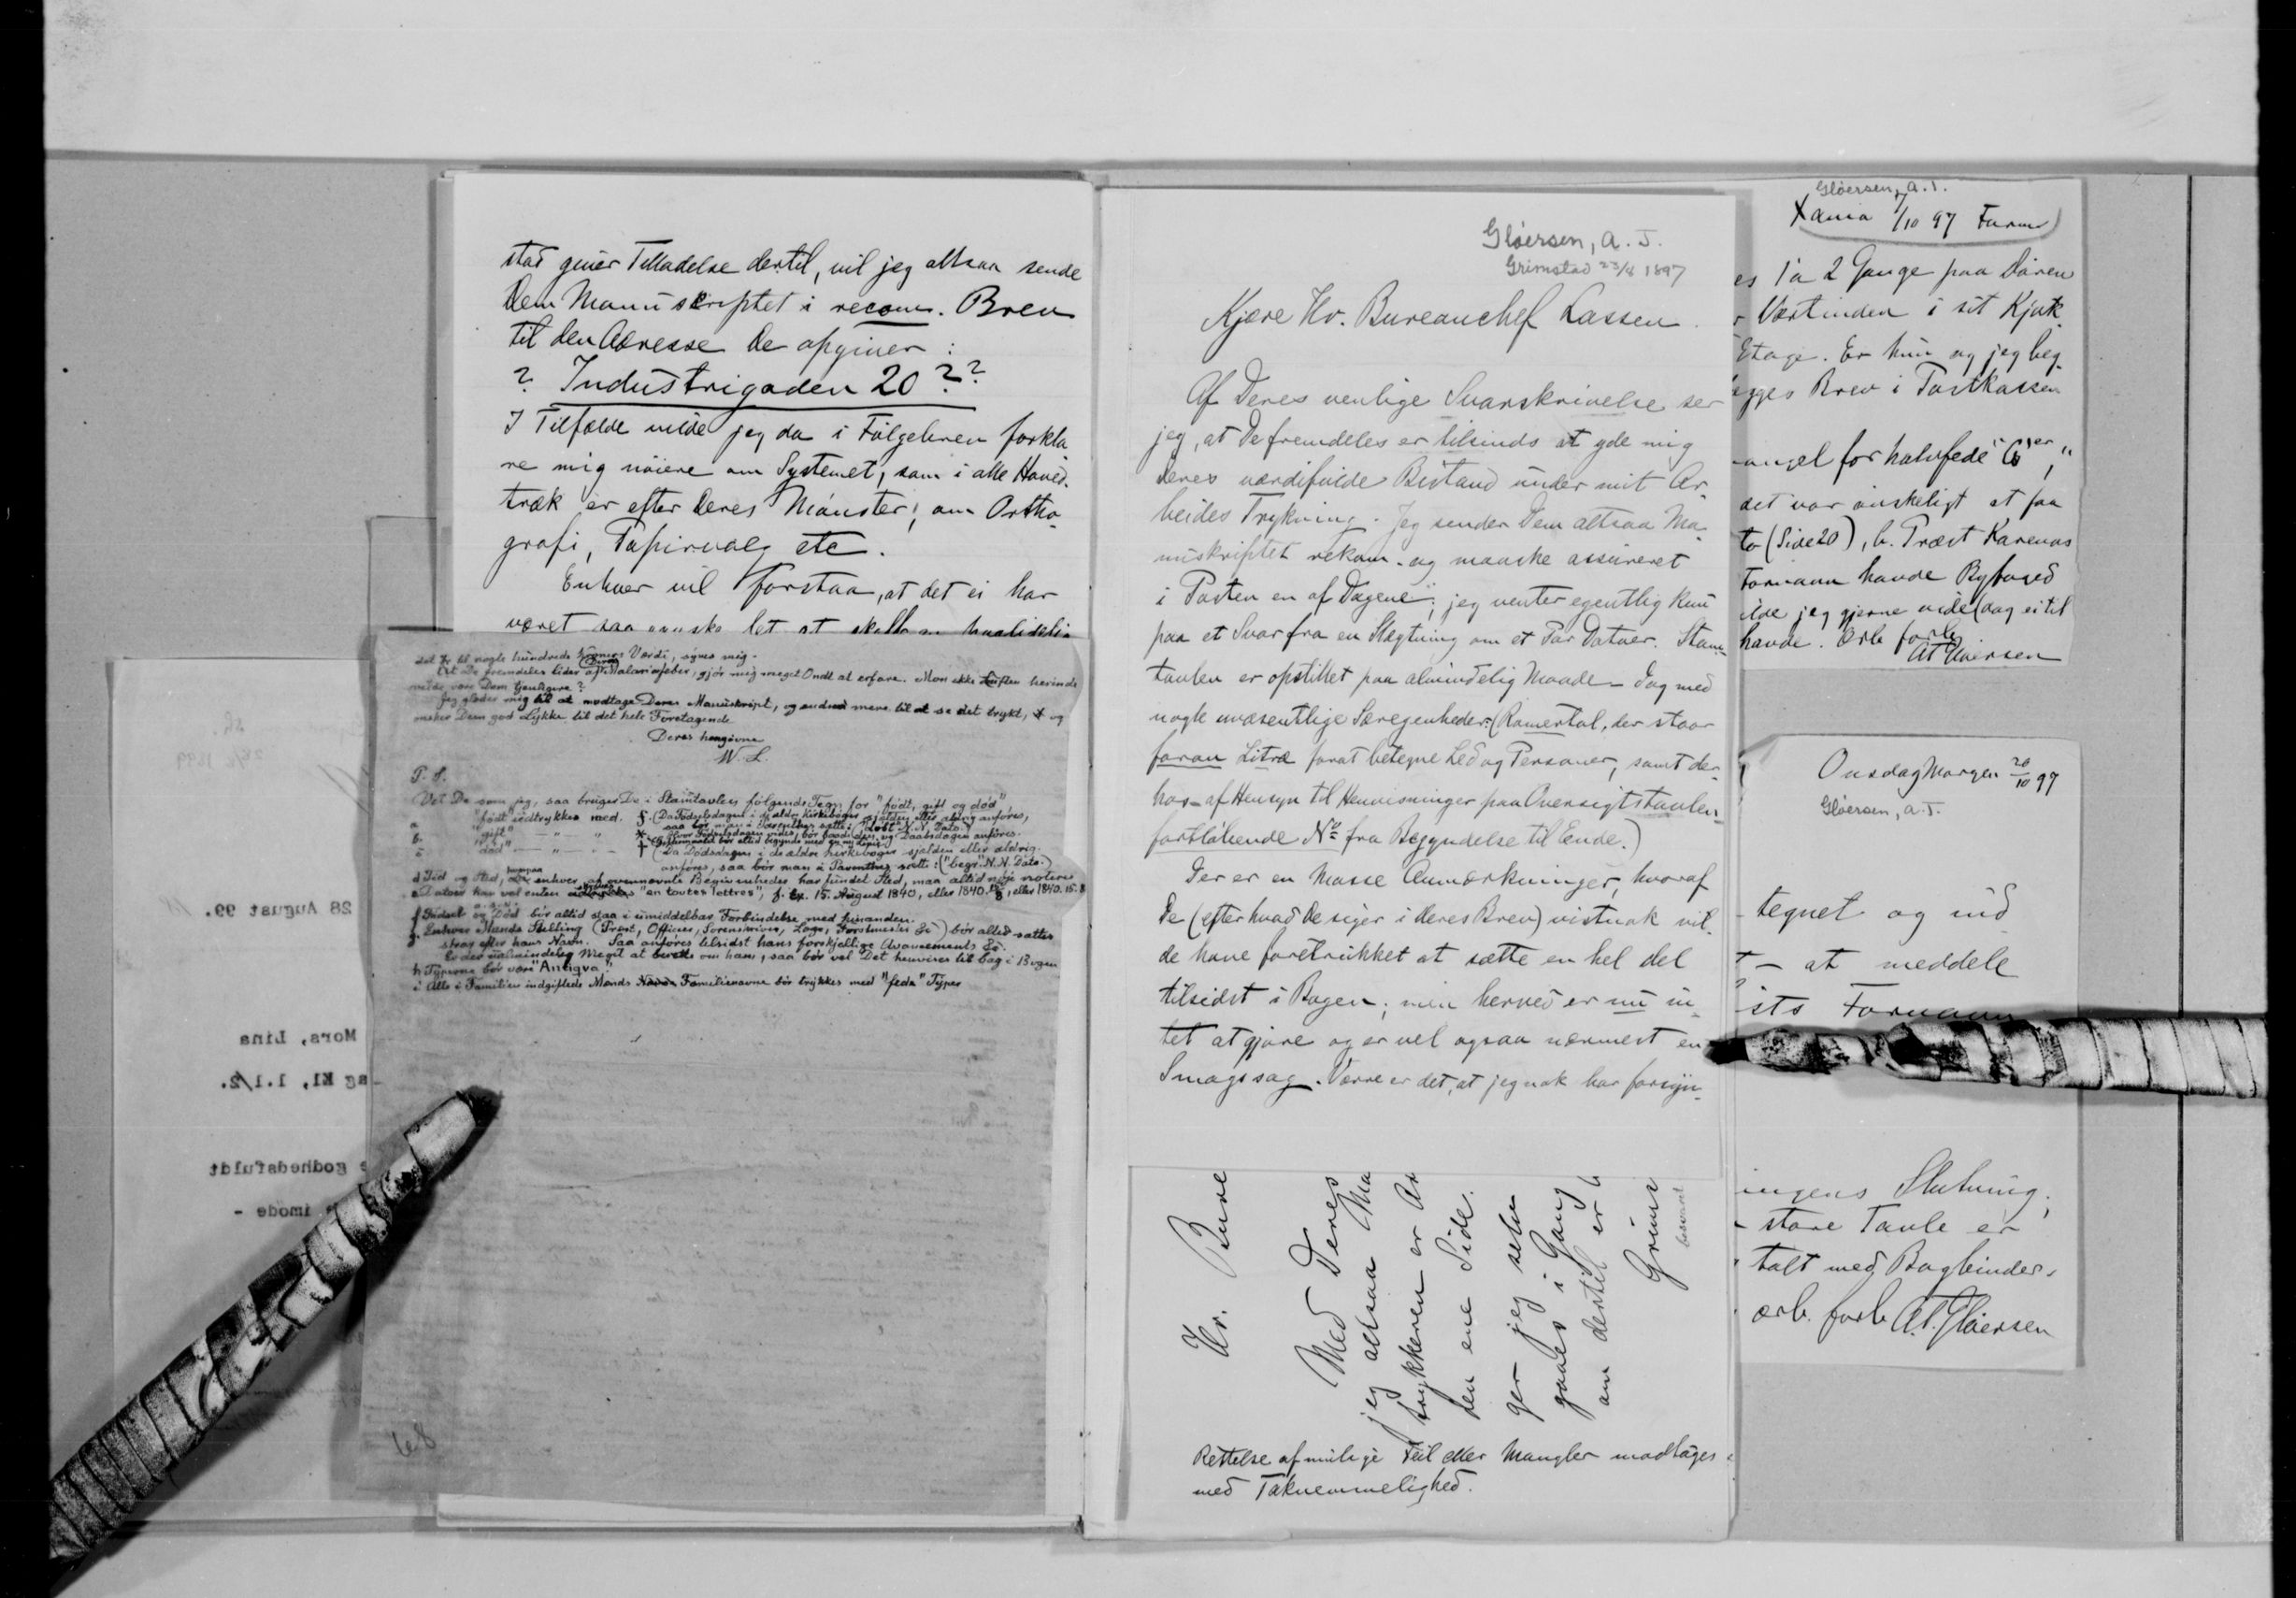 stad giver Tilladelse dertil, vil jeg altsaa sende
Dem Manuskriptet i recom. Brev
til den Adresse De opgiver :
? Industrigaden 20 ??
I Tilfælde vilde jeg da i Følgebrev forkla
re mig nöiere om Systemet, som i alle Hoved-
træk er efter Deres Mönster, om Ortho-
grafi, Papirvalg etc.
Enhver vil forstaa, at det ei har
været saa ganske let at
det Hr til nogle hundrede Kroners Værdi, synes mig.
At De fremdeles lider af Malariafeber, gjør mig meget Ondt at erfare. Mon ikke Luften herinde
vilde være Dem tjenligere?
Jeg glæder mig til at modtage Deres Manuskript, og endnu mere til at se det trykt, og
ønsker Dem god Lykke til det hele Foretagende
Deres hengivne
W. L.
P. S.
Ved De som jeg, saa bruger De i Stamtavlen følgende Tegn for "født, gift og død"
a "født" udtrykkes med. f. (Da Fødselsdagen i de ældre Kirkebøger sjelden eller aldrig anføres,
saa bør man i Parenthes sætte: ("døbt" N.N. Dato.)
Hvor Fødselsdagen vides, bør baade den og Daabsdagen anføres.
b. "gift" — „ — „ *
c "død" — „ — „ — † (Da Dødsdagen i de ældre Kirkebøger sjelden eller aldrig
anføres, saa bør man i Parenthes sætte: ("begr." N.N. Dato.)
d Tid og Sted, enhver af ovennævnte Begivenheder har fundet Sted, maa altid nøje noteres
e Datoer kan vel enten "en toutes lettres", f. Ex. 15. August 1840, eller 1840. 15/8, eller 1840. 15. 8
f Fødsel og Død bør altid staa i umiddelbar Forbindelse med hinanden.
g. Enhver Mands Stilling (Præst, Officer, Sorenskriver, Læge, Forstmester &c) bør altid sættes
strax efter hans Navn. Saa anføres tilsidst hans forskjellige Avancements &c.
Er der ualmindelig Meget at berette om ham, saa bør vel Det henvises til bag i Bogen
h Typerne bør være "Antiqva".
i Alle i Familien indgiftede Mænds Familienavne bør trykkes med "fede" Typer
68
28 August 99.
Mors, Lina
ag Kl, 1.1/2.
godhedsfuldt
imöde -
Glöersen, A. J.
Grimstad 23/8 1897
Kjære Hr. Bureauchef Lassen.
Af Deres venlige Svarskrivelse ser
jeg, at De fremdeles er tilsinds at yde mig
Deres værdifulde Bistand under mit Ar-
beides Trykning. Jeg sender Dem altsaa Ma-
nuskriptet rekom. og maaske assureret
i Posten en af Dagene; jeg venter egentlig kun
paa et Svar fra en Slægtning om et Par Datoer. Stam-
tavlen er opstillet paa almindelig Maade – dog med
nogle uvæsentlige Særegenheder: (Romertal, der staar
foran Litræ forat betegne Led og Personer, samt der-
hos – af Hensyn til Henvisninger paa Oversigtstavlen –
fortløbende No fra Begyndelse til Ende.)
Der er en Masse Anmærkninger, hvoraf
De (efter hvad De siger i Deres Brev) vistnok vil-
de have foretrukket at sætte en hel del
tilsidst i Bogen; men herved er nu in-
tet at gjøre og er vel ogsaa nærmest en
Smagssag. Værre er det, at jeg nok har forsyn-
Hr. Bure
Med Deres
jeg altsaa Ma
trykkeren er Ar
den ene Side.
ger jeg selv
gaaes i Gang
om dertil er
Grims
besvaret
Rettelse af mulige Feil eller Mangler modtages
med Taknemmelighed.
Glöersen, A. J.
Xania 1/10 97
es 1 à 2 Gange paa Dören
r Værtinden i sit Kjøk
Etage. Er hun og jeg beg
ægges Brev i Postkassen
angel for halvfede
det var önskeligt at faa
to (Side 20), b. Præst
Formann havde Byfoged
ilde jeg gjerne vide (dog ei til
havde. Ærb forb
A T Glöersen
Onsdag Morgen 20/10 97
Glöersen, A. J.
tegnet og ind
– at meddele
ists Formann
ingens Slutning;
store Tavle er
talt med Bogbinder
ærb. forb. A.T. Glöersen